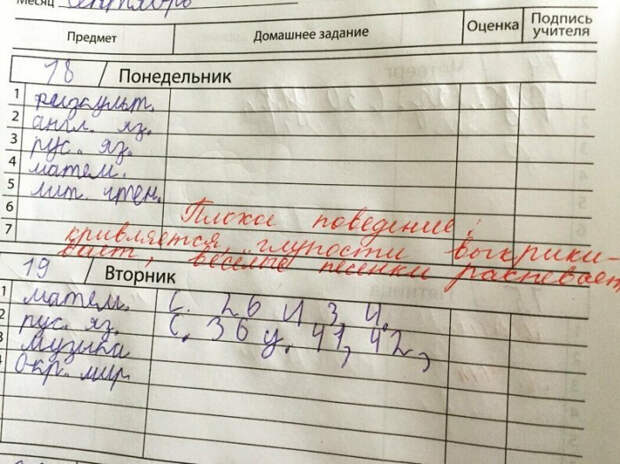 Месяц Сентябрь
Предмет Домашнее задание Оценка Подпись учителя
18 Понедельник
1 физкульт.
2 англ. яз.
3 рус. яз.
4 матем.
5 лит. чтен.
6
7
Плохое поведение:
кривляется, глупости выкрики-
вает, веселые песенки распевает,
19 Вторник
1 матем. С. 26 И 3 4.
2 рус. яз. С. 36 у. 41, 42,
3 музыка
Окр. мир.